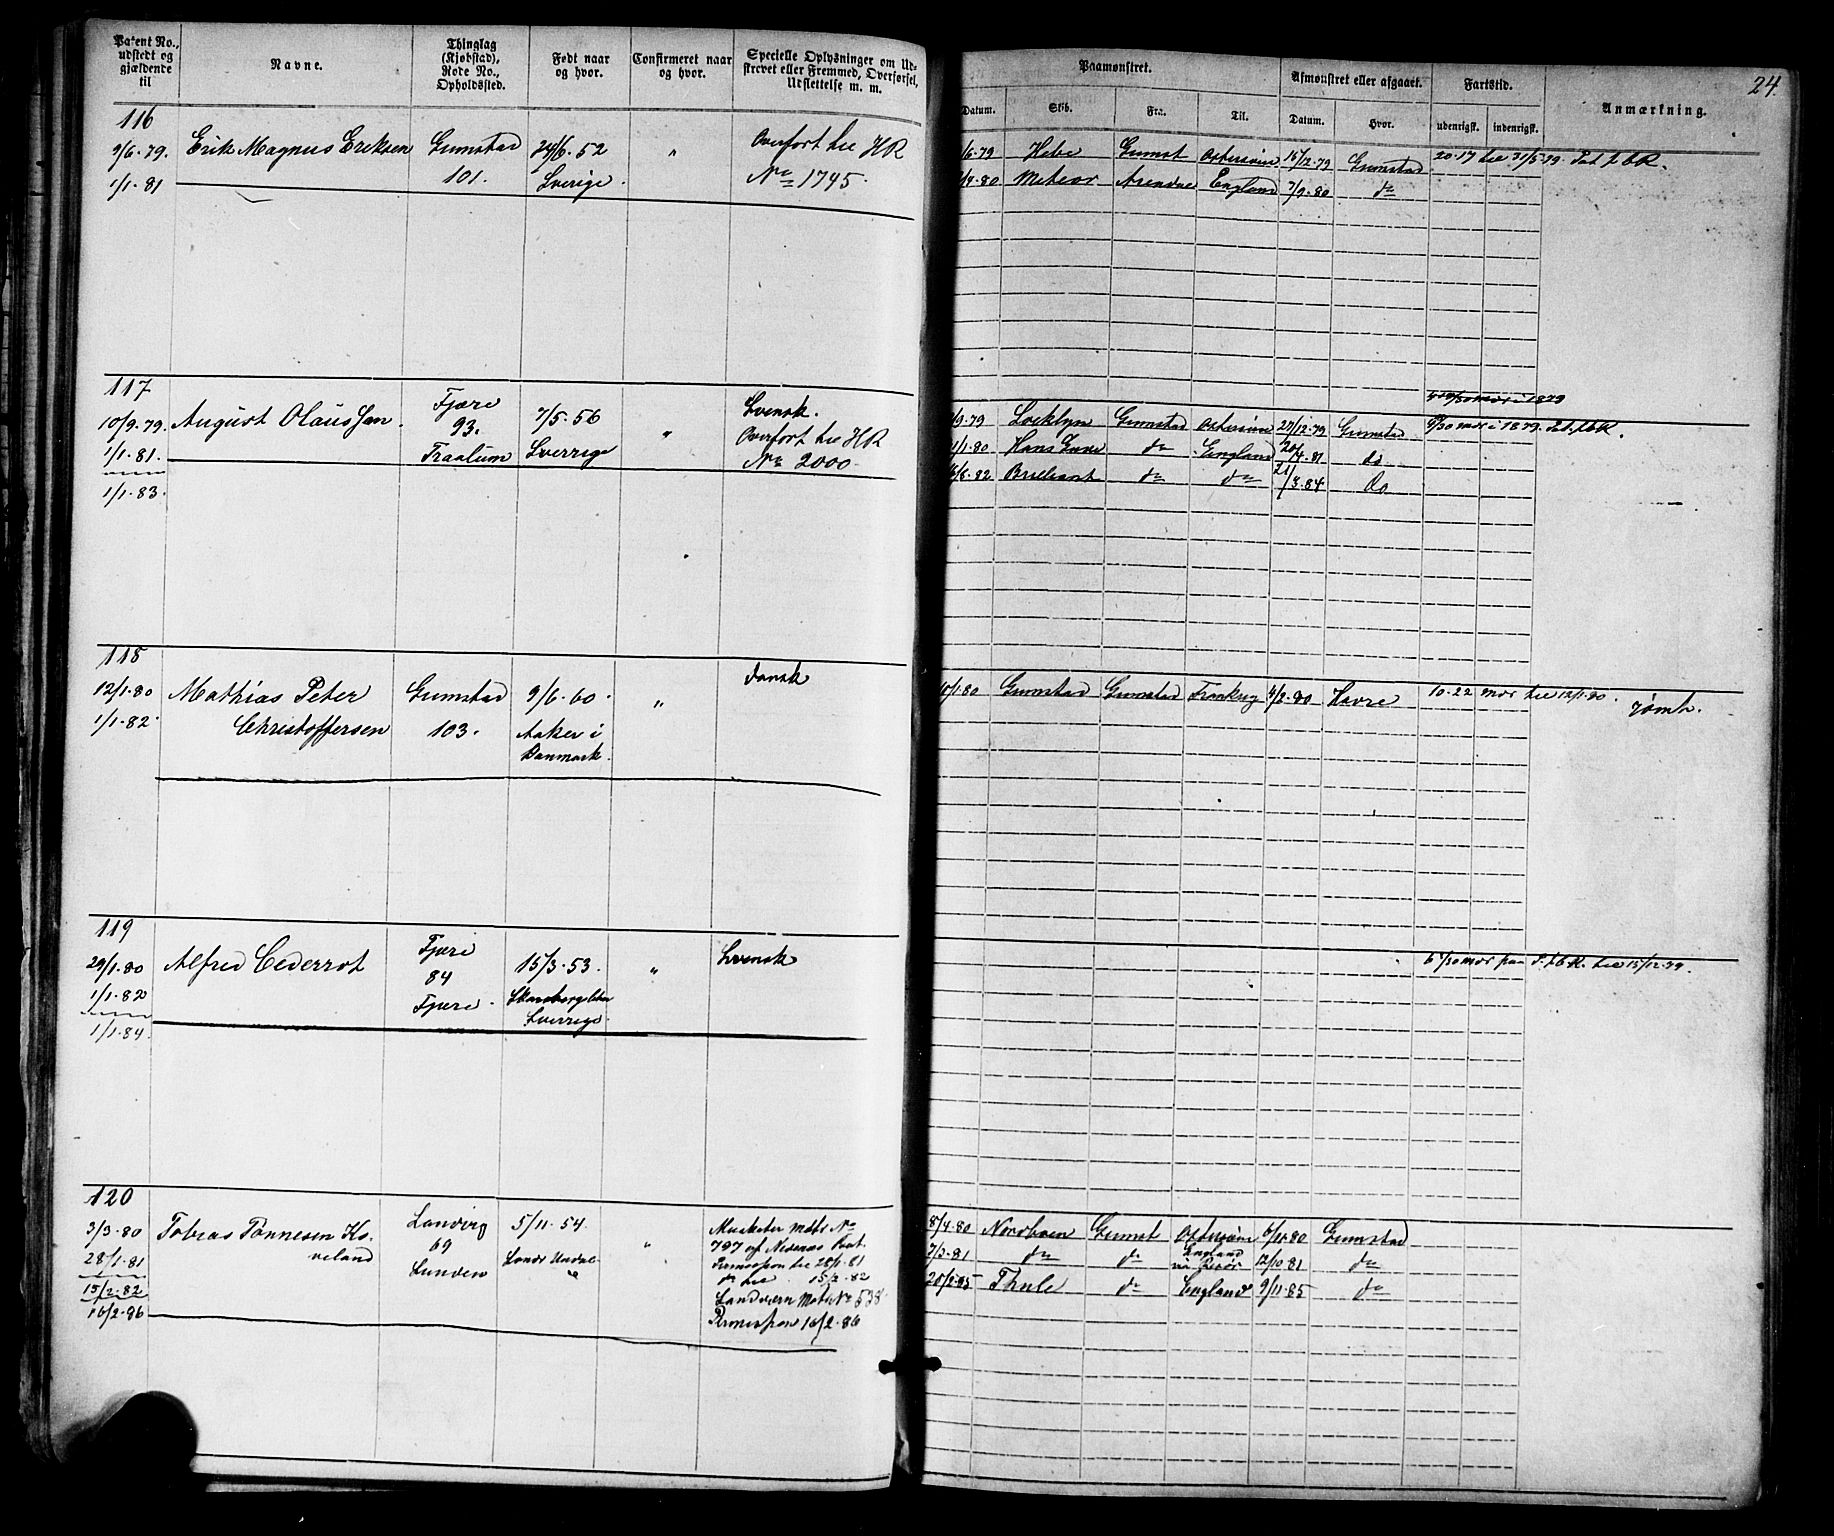 24.
Patent No., udstedt og gjældende til
Navne.
Thinglag (Kjøbstad), Rode No., Opholdssted.
Født naar og hvor.
Confirmeret naar og hvor.
Specielle Oplysninger om Udskrevet eller Fremmed, Overførsel, Udslettelse m. m.
Paamønstret.
Afmønstret eller afgaaet.
Fartstid.
Anmærkning.
Datum.
Skib.
Fra.
Til.
Datum.
Hvor.
udenrigsk.
indenrigsk.
116
9/6.79. Erik Magnus Eriksen Grimstad 24/6.52 " Overført til HR
1/1.81 101. Sverige. No 1745.
/6.79 Hebe Grimst Østersøen 15/12.79 Grimstad 20.17 til 31/5.79.
/4.80 Meteor Arendal England 7/9.80 do
117
10/9.79. August Olaussen Fjære 7/5.56 " Svensk.
1/1.81. 93. Sverrige Overført til HR
1/1.83. Fraalum No 2000.
/9.79 Locklyn Grimstad Østersøen 27/12.79 Grimstad
/1.80 Hans do England 20/4.81 do
/8.82 Brilliant do do 21/3.84 do
118
12/1.80 Mathias Peter Grimstad 9/6.60. " dansk
1/1.82. Christoffersen 103. Aaker i
Danmark.
10/1.80 Grimstad Grimstad Frankrig 4/2.80 Havre 10.22 mdr til 12/1.80. rømt.
119
29/1.80 Alfred Cederrot Fjære 15/3.53. " Svensk
1/1.82 84 Skaraborgslän
1/1.84. Fjære. Sverrige.
til 15/12.79.
120
3/3.80 Tobias Tønnesen Ka- Landvig 5/11.54. " Musketer Mdb No
28/1.81 veland 69 Søndr Undal 797 af Nedenæs Bat.
15/2.82 Lunden Permission til 28/1.81
16/2.86 do til 15/2.82
Landværn Mdb No 538.
Permission 16/2.86
8/4.80 Nordhavn Grimst Østersøen 6/11.80 Grimstad
7/3.81 do do England 12/10.81 do
20/2.85 Thule do England 9/11.85 do